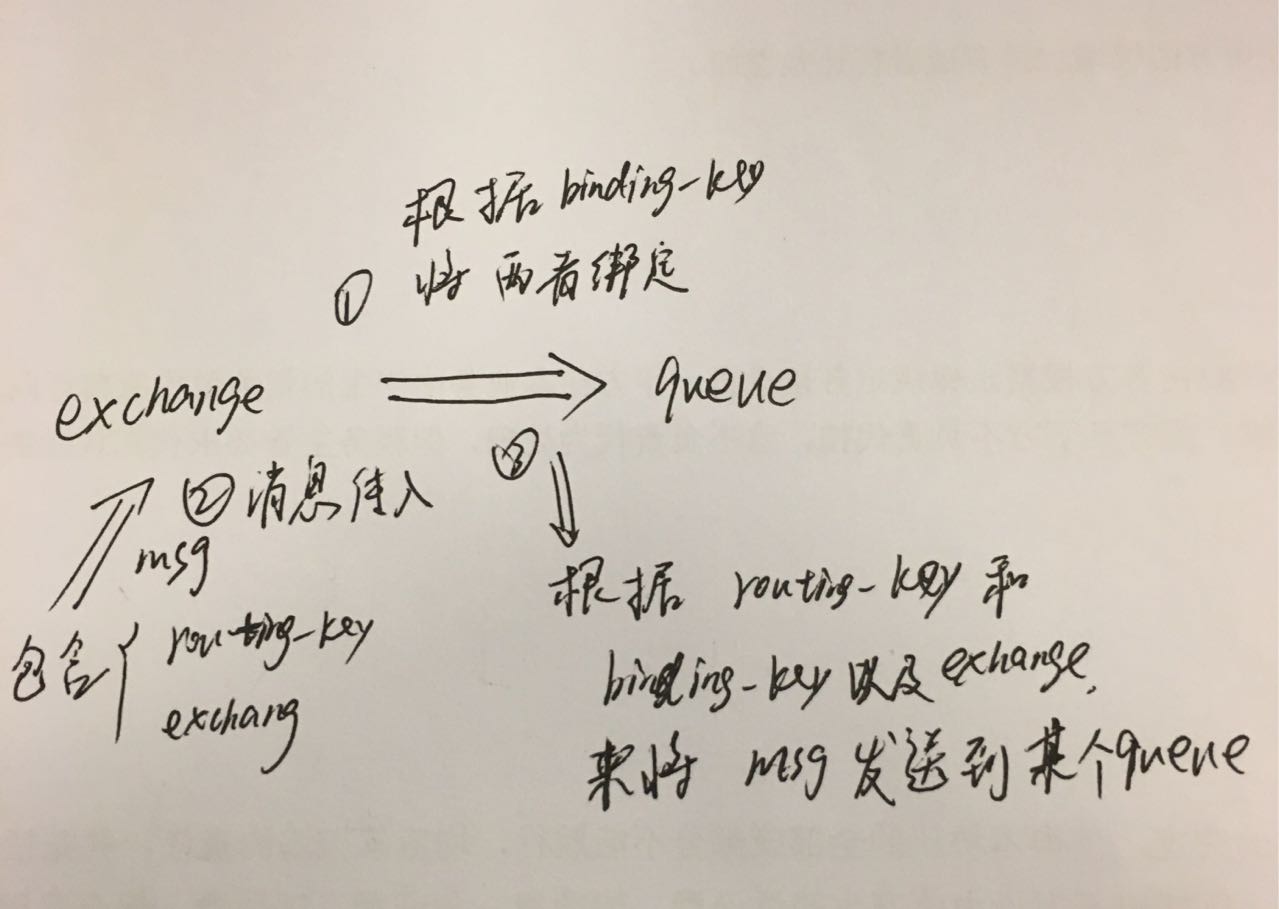 根据 binding-key
① 将两者绑定
exchange
queue
② 消息传入
msg
包含 {
routing-key
exchang
③
根据 routing-key 和
binding-key 以及 exhange,
来将 msg 发送到某个queue